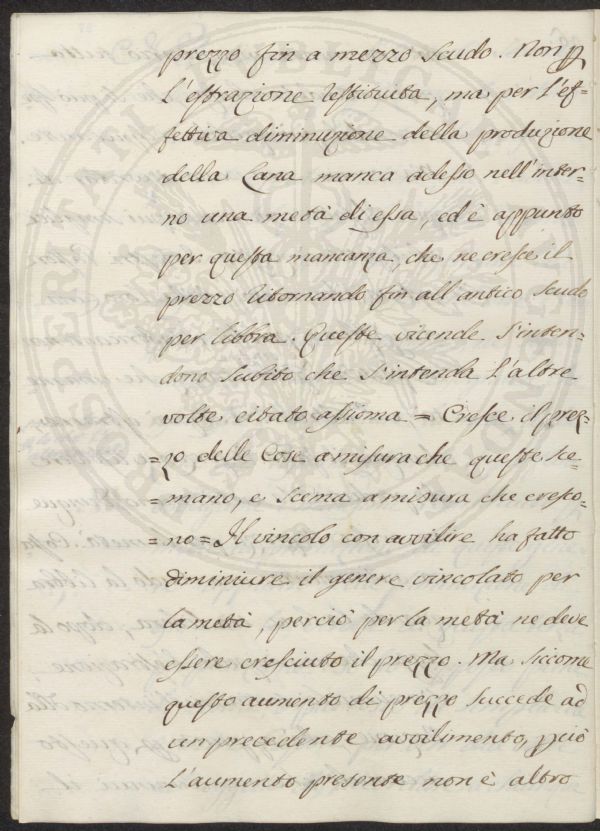 prezzo fin a mezzo scudo. Non p
l'estrazione restituita, ma per l'ef=
fettiva diminuzione della produzione
della Lana manca adesso nell'inter=
no una metà di essa, ed è appunto
per questa mancanza, che ne cresce il
prezzo ritornando fin all'antico scudo
per libbra. Queste vicende s'inten=
dono subito che s'intenda l'altre
volte citato assioma = Cresce il prez=
=zo delle Cose a misura che queste sce=
=mano, e scema a misura che cresco=
=no = Il vincolo con avvilire ha fatto
diminuire il genere vincolato per
la metà, perciò per la metà ne deve
essere cresciuto il prezzo. Ma siccome
questo aumento di prezzo succede ad
un precedente avvilimento, pciò
l'aumento presente non è altro